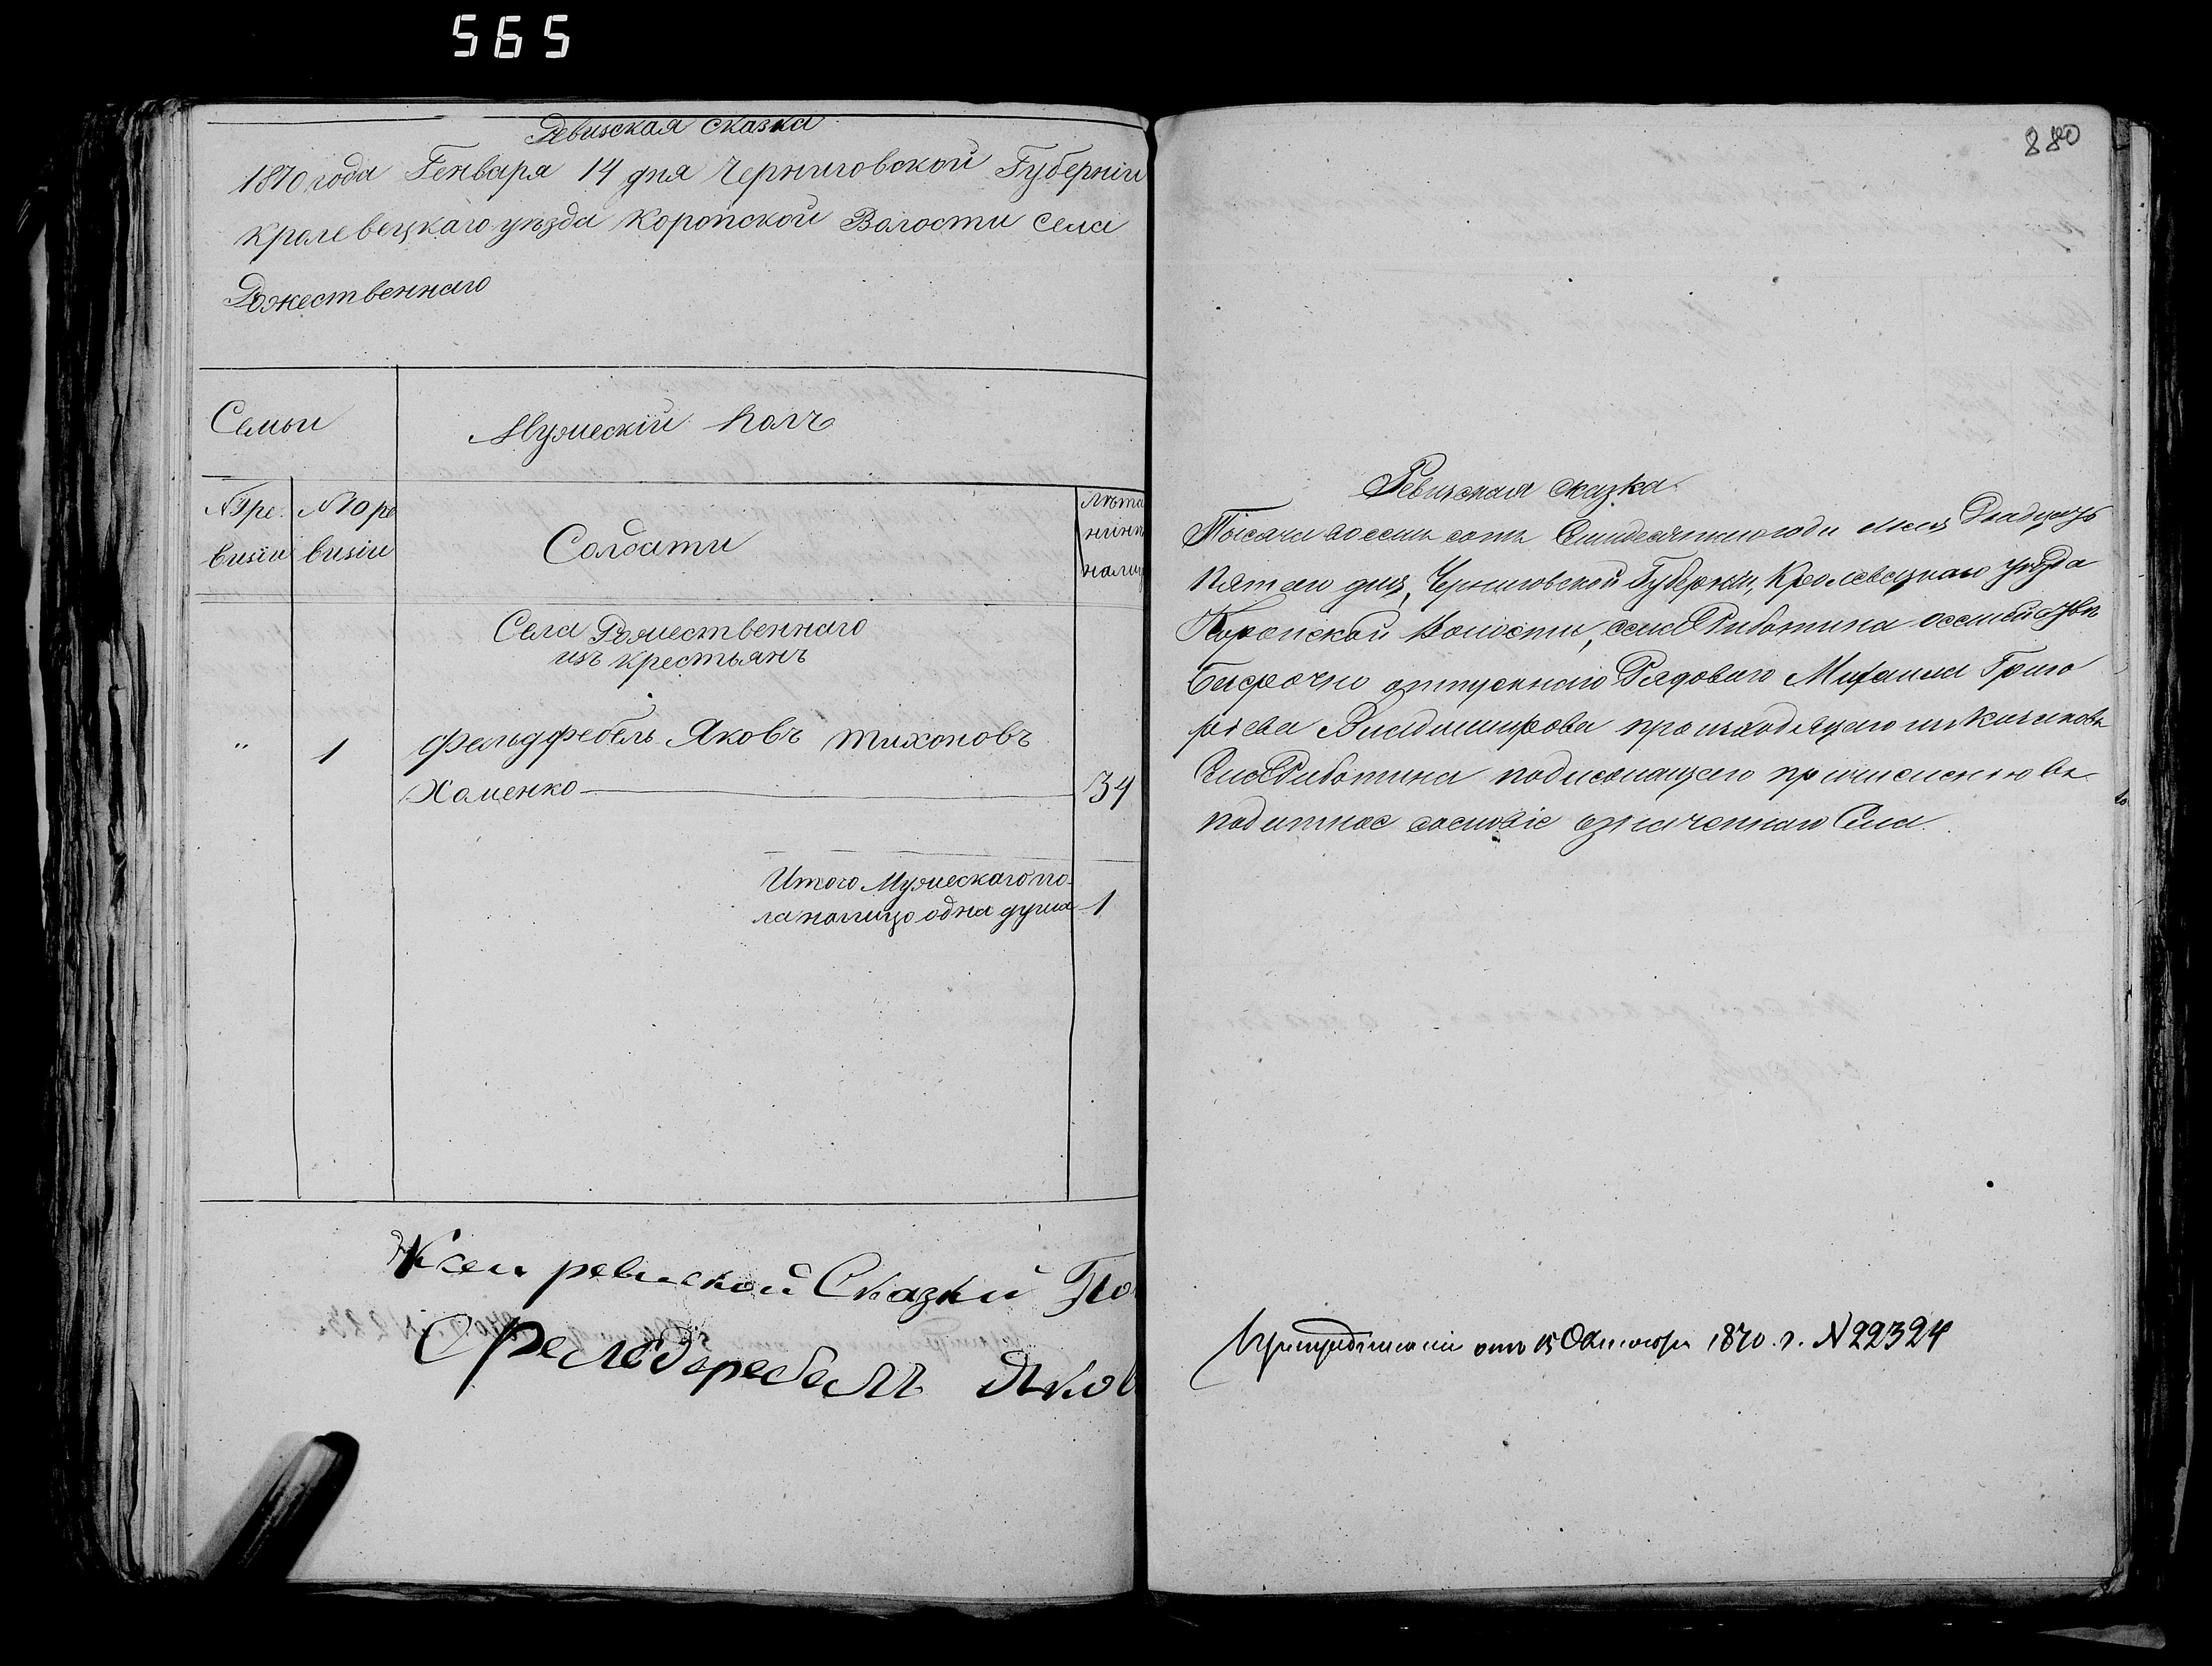 565
Ревизская сказка
1870 года Генваря 14 дня Черниговской Губерніи
Кролевецкаго уѣзда Коропской Волости Села
Рожественнаго
Семьи
Мужескій полъ
№ ре
визіи
№ по ре
визіи
Солдати
Лѣта
нынѣ
налиц
Села Рожественнаго
изъ крестьянъ
"
1
Фельдфебель Яковъ Тихоновъ
Хоменко
34
Итого Мужескаго по-
ла налицо одна душа
1
К сей ревиской Сказки По
Фелѣдфебель Яков
880
Ревизская сказка
Тысяча восемь сотъ Семидесятого года мая Двадцать
Пятаго дня, Черниговской Губерніи, Кролевецкаго уѣзда
Коропской Волости, села Риботина о
Безсрочно отпускнаго Рядоваго Михаила Григо
ріева Владимирова происходящаго изъ Казаковъ
Села Риботина подлежащаго причисленію въ
податное сословіе означеннаго Села.
отъ 15 Октября 1870 г. № 22324